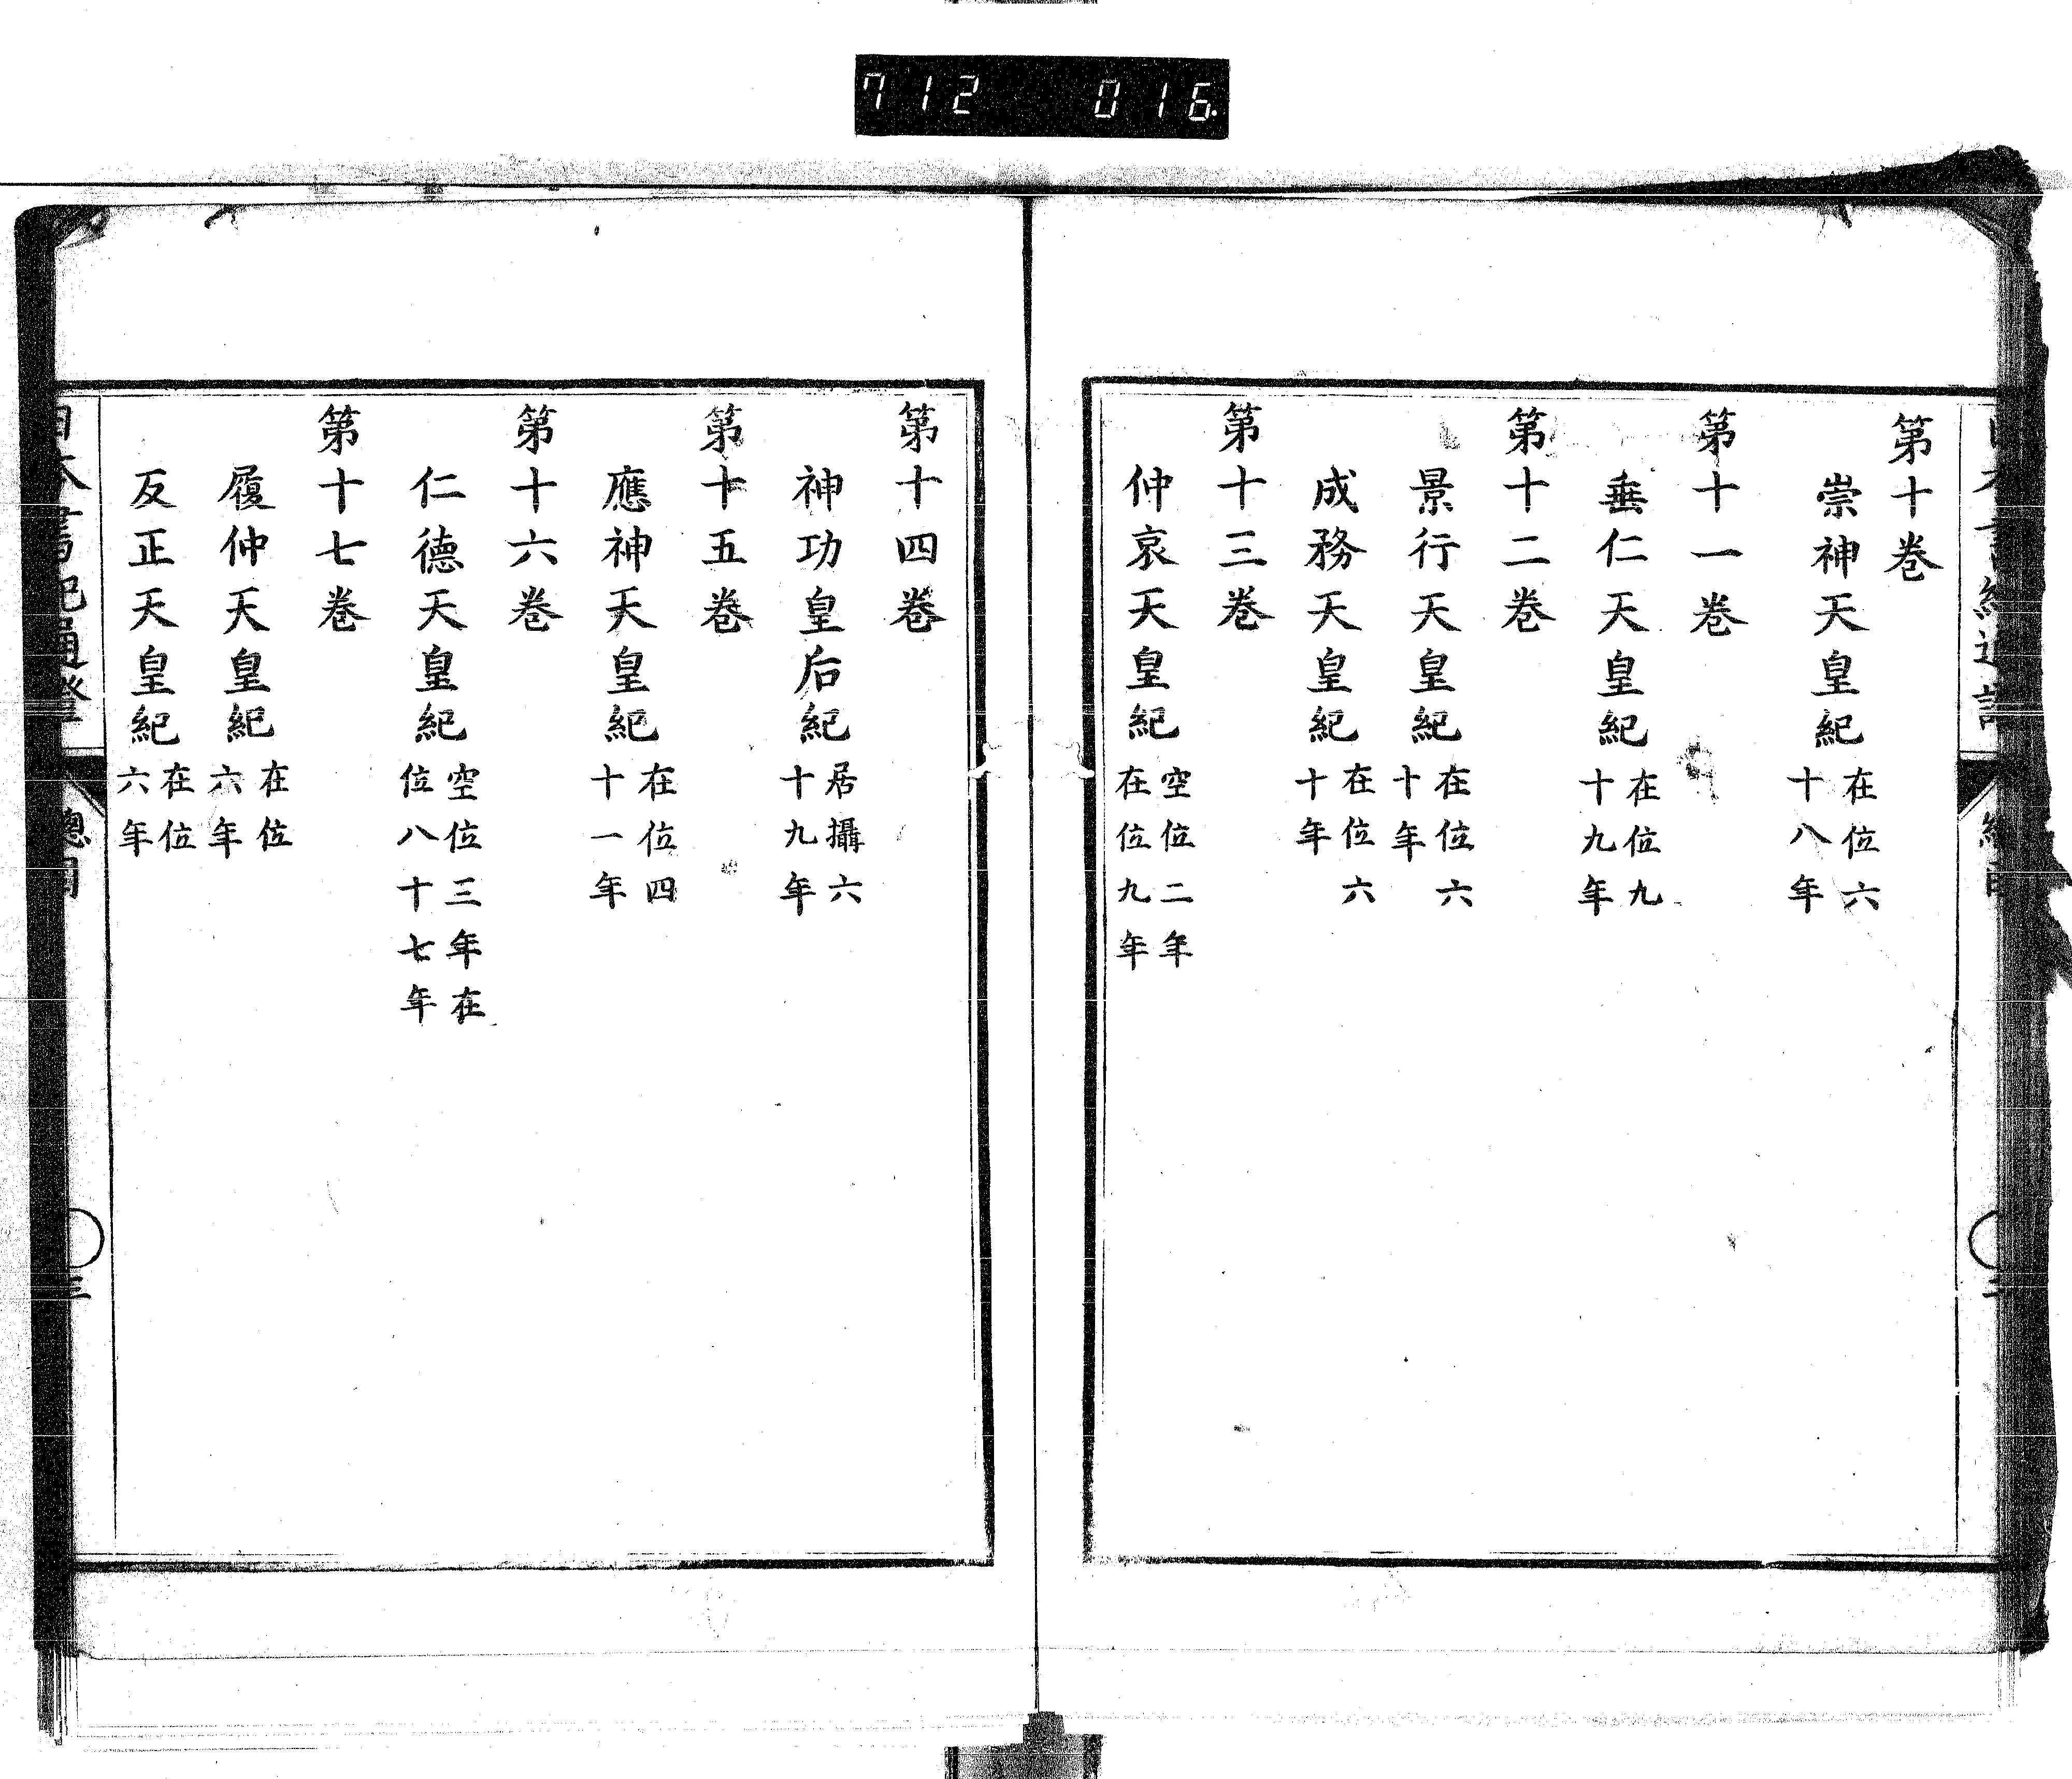 712 016
第十巻
崇神天皇紀在位六十八年
第十一巻
垂仁天皇紀在位九十九年
第十二巻
景行天皇紀在位六十年
成務天皇紀在位六十年
第十三巻
仲哀天皇紀空位二年在位九年
第十四巻
神功皇后紀居攝六十九年
第十五巻
應神天皇紀在位四十一年
第十六巻
仁德天皇紀空位三年在位八十七年
第十七巻
履仲天皇紀在位六年
反正天皇紀在位六年
日本書紀通證 總目